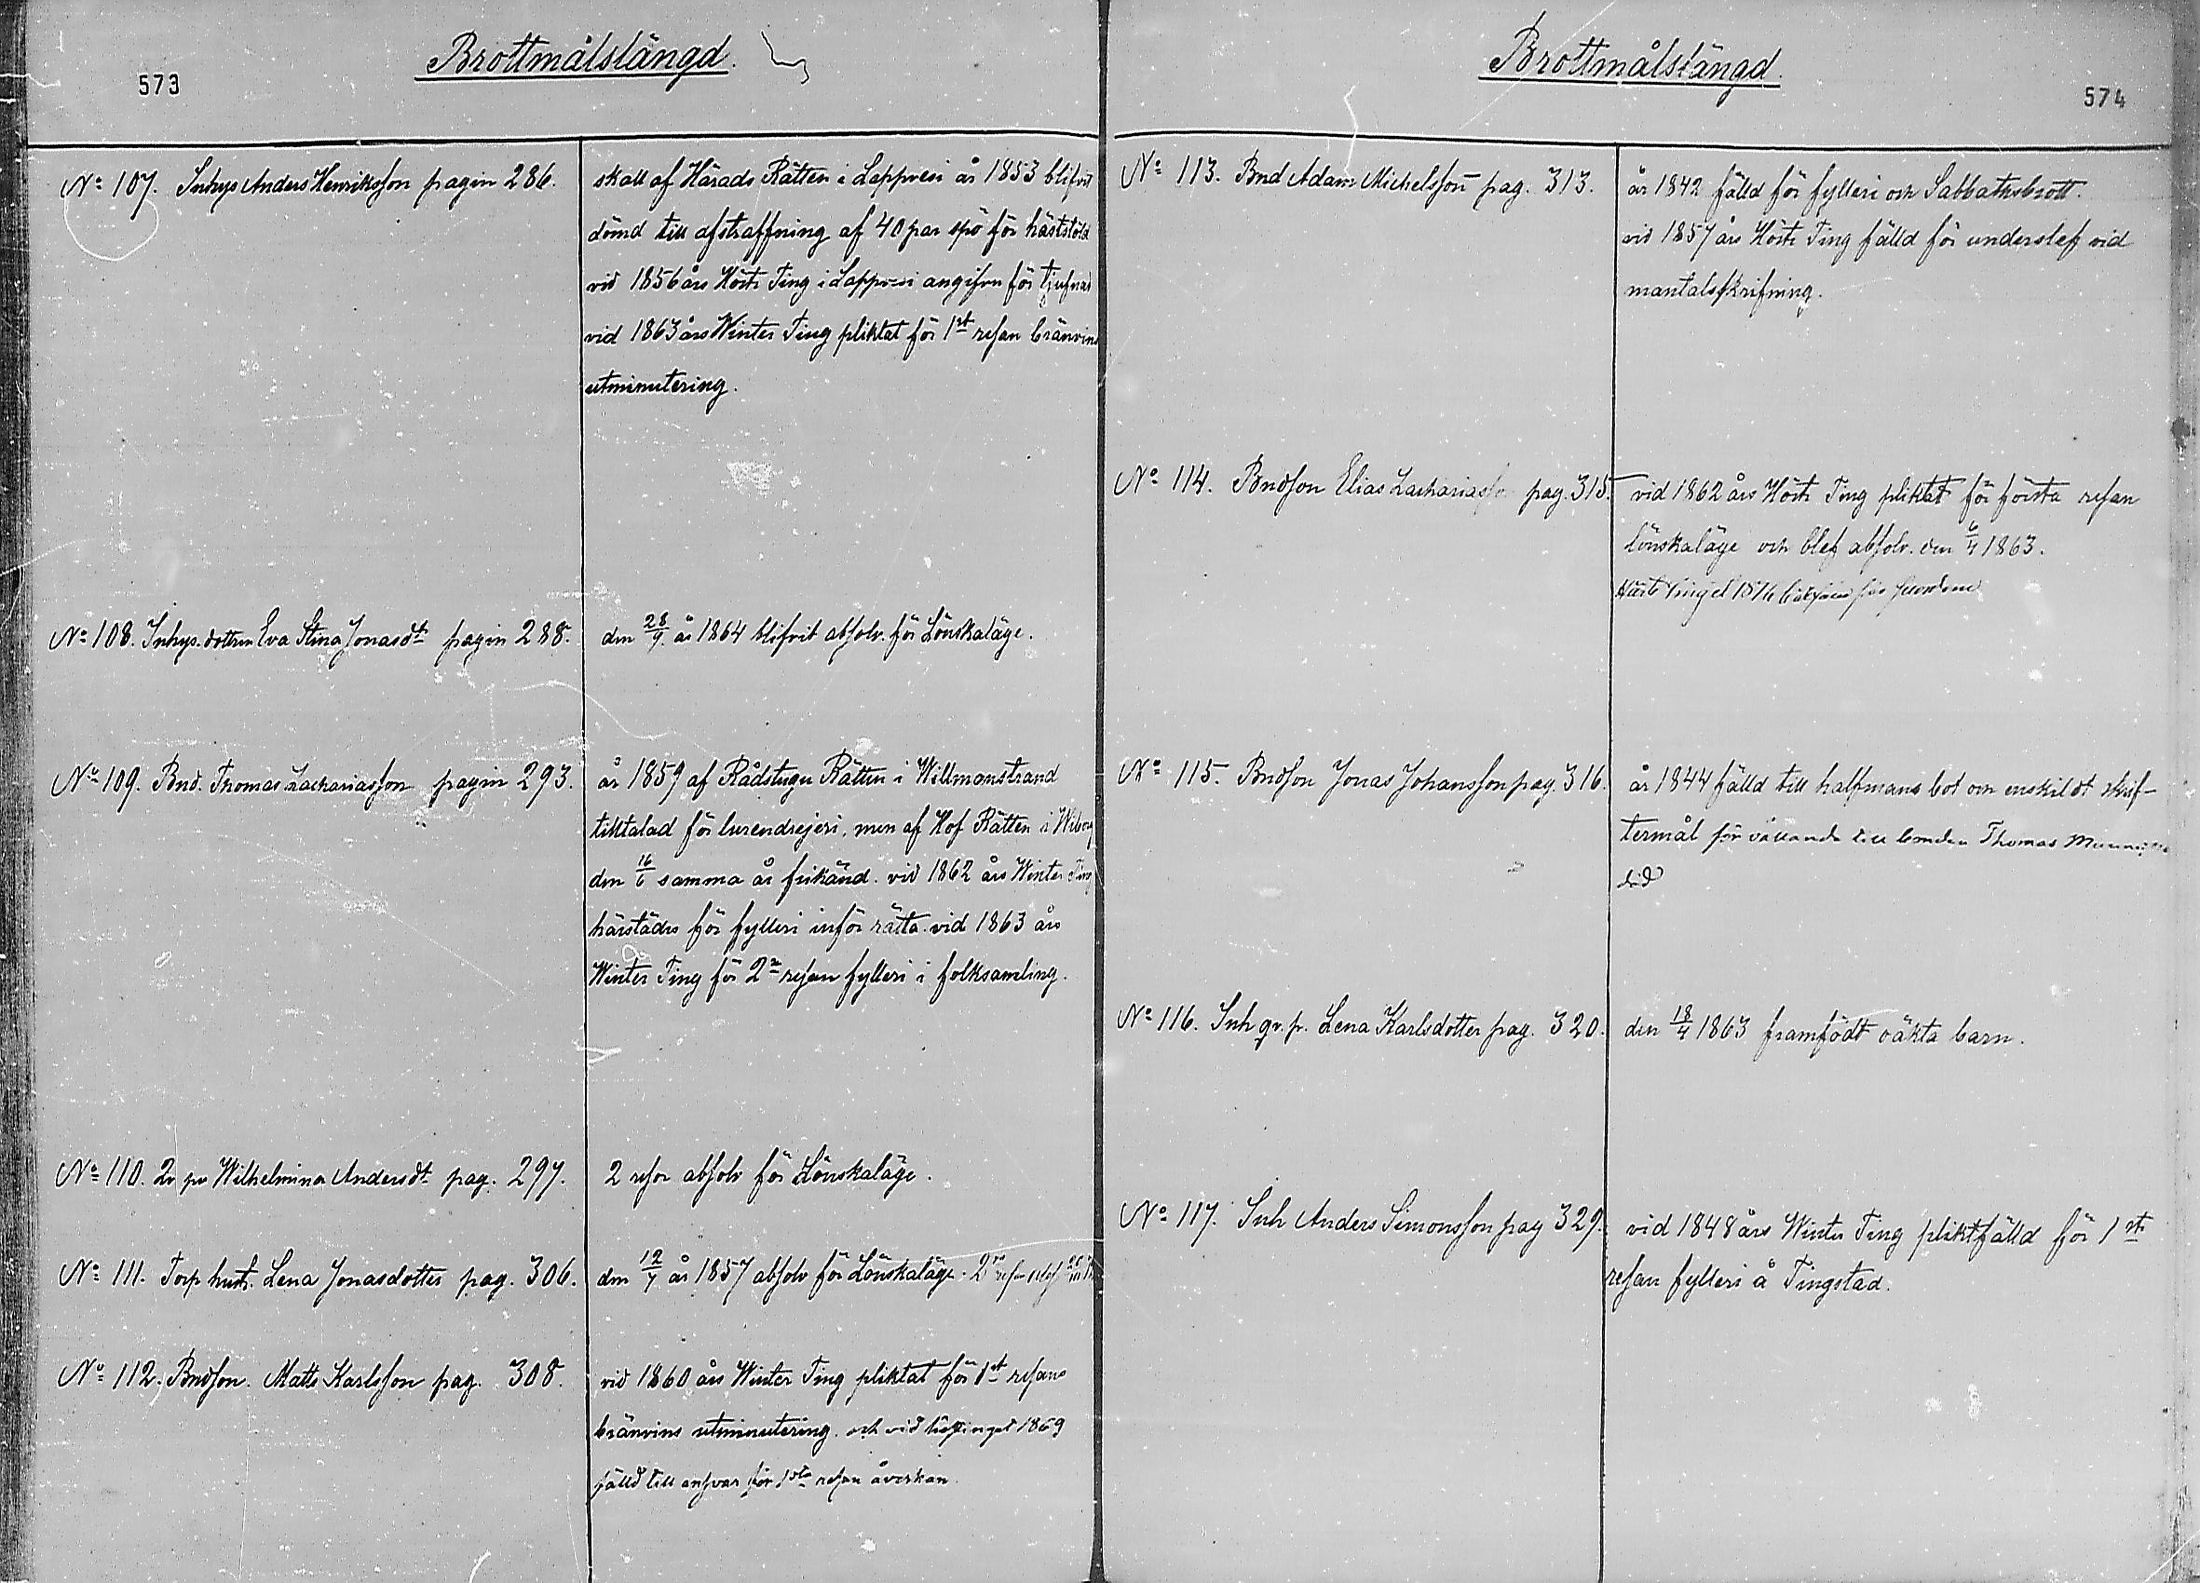 573
Brottmålslängd.
No 107. Inhys Anders Henriksson pagin 286.
skall af Härads Rätten i Lappvesi år 1853 blifvit
dömd till afstraffning af 40 par spö för häststöld
vid 1856 års Höste Ting i Lappvesi angifven för tjufnad
vid 1863 års Winter Ting pliktat för 1st resan bränvins
utminutering.
No 108. Inhys. dottren Eva Stina Jonasdt pagin 288.
den 28/9. år 1864 blifvit absolv. för Lönskaläge.
No 109. Bnd. Thomas Zachariasson pagin 293.
år 1859 af Rådstugu Rätten i Willmanstrand
tilltalad för lurendrejeri, men af Hof Rätten i Wiborg
den 16/6 samma år frikänd. vid 1862 års Winter Ting
härstädes för fylleri inför rätta. vid 1863 års
Winter Ting för 2n resan fylleri i folksamling.
No 110. Wilhelmina Andersdt pag. 297.
2 resor absolv för Lönskaläge.
No 111. Torp hust. Lena Jonasdotter pag. 306.
den 12/7 år 1857 absolv för Lönskaläge. 2 resan
No 112. Bndson. Matts Karlsson pag. 308.
vid 1860 års Winter Ting pliktat för 1st resans
bränvins utminutering. och vid 1869
fälld till ansvar för 1sta resan åverkan
Brottmålslängd.
574
No 113. Bnd Adam Michelsson pag. 313.
år 1842 fälld för fylleri och Sabbathsbrott.
vid 1857 års Höste Ting fälld för underslef vid
mantalsskrifning.
No 114. Bndson Elias Zachariasson pag. 315.
vid 1862 års Höste Ting pliktat för första resan
lönskaläge och blef absolv. den 6/4 1863.
No 115. Bndson Jonas Johansson pag. 316.
år 1844 fälld till halfmans bot och enskildt skrif-
termål för vållande till bonden Thomas
död
No 116. Inh qv. p. Lena Karlsdotter pag. 320.
den 18/4 1863 framfödt oäkta barn.
No 117. Inh Anders Simonsson pag 329.
vid 1848 års Winter Ting pliktfälld för 1st
resan fylleri å Tingstad.